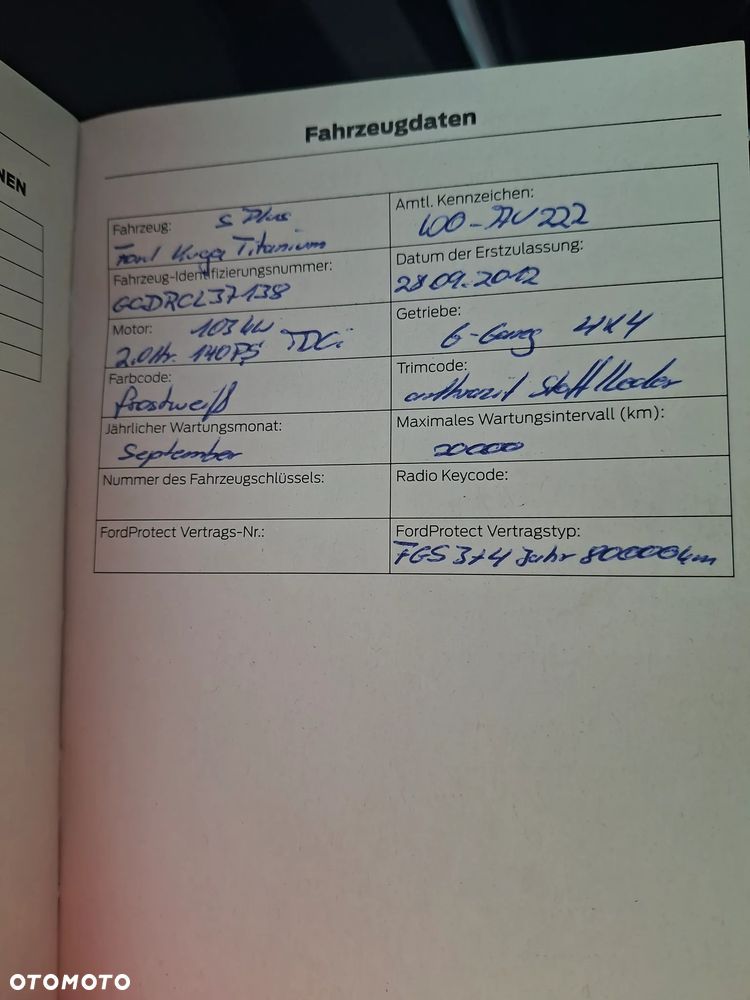 NEN
Fahrzeugdaten
Fahrzeug: S Plus
Ford Kuga Titanium
Amtl. Kennzeichen:
WO-AU 222
Fahrzeug-Identifizierungsnummer:
GCDRCL37138
Datum der Erstzulassung:
28.09.2012
Motor: 103 kW
2.0ltr. 140PS TDCi
Getriebe:
6-Gang 4x4
Farbcode:
frostweiß
Trimcode:
anthrazit Stoff/Leder
Jährlicher Wartungsmonat:
September
Maximales Wartungsintervall (km):
20000
Nummer des Fahrzeugschlüssels:
Radio Keycode:
FordProtect Vertrags-Nr.:
FordProtect Vertragstyp:
FGS 3+4 Jahr 80000km
OTOMOTO